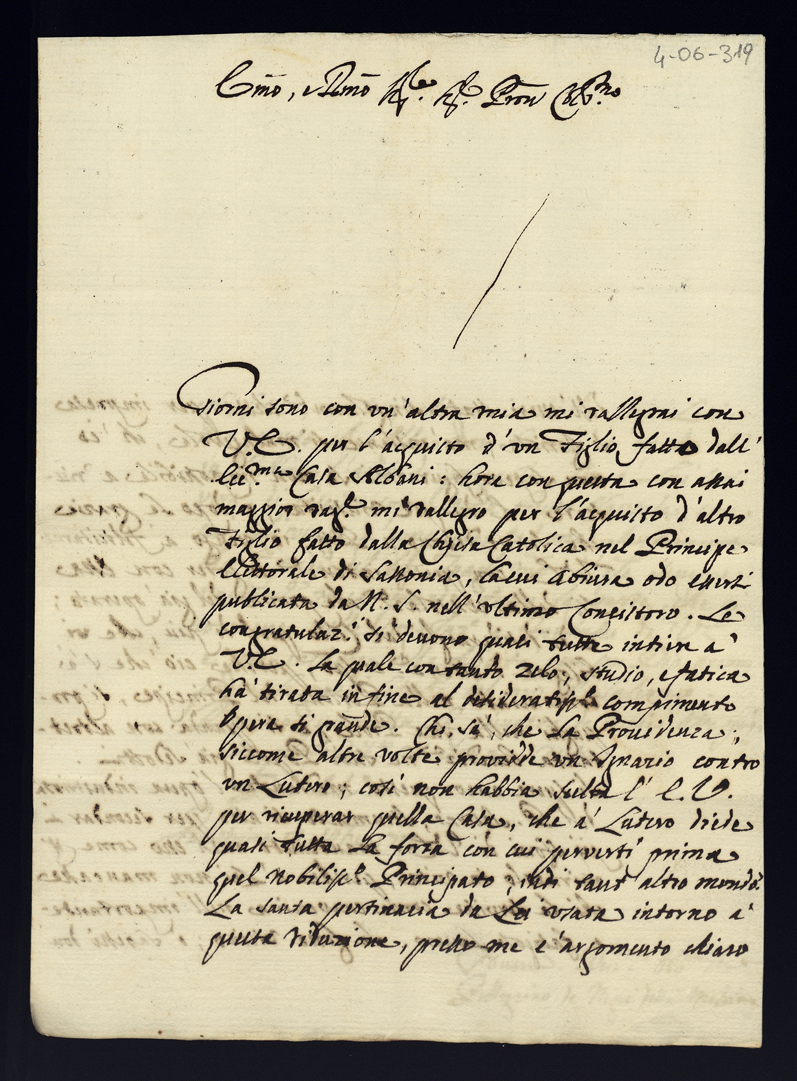 4-06-319
Emo, e Rmo Sig.re Sig.re Pron Col.mo
Giorni sono con un'altra mia mi rallegrai con
V.E. per l'acquisto d'un Figlio fatto dall'
Ecc.ma Casa Albani: hora con questa con assai
maggior rag.e mi rallegro per l'acquisto d'altro
Figlio fatto dalla Chiesa Catolica nel Principe
Elettorale di Sassonia, la cui Abiura odo essersi
publicata da N.S. nell'ultimo Concistoro. Le
congratulaz.i si devono quasi tutte intiere a'
V.E. la quale con tanto zelo, studio, e fatica
hà tirata in fine al desideratiss.o compimento
opera si grande. Chi sà, che la Providenza,
siccome altre volte providde un Ignazio contro
un Lutero; così non habbia scelta l'E.V.
per ricuperar quella Casa, che à Lutero diede
quasi tutta la forza con cui pervertì prima
quel nobiliss.o Principato, indi tant'altro mondo.
La santa pertinacia da Lei usata intorno à
questa riduzione, presso me è argomento chiaro